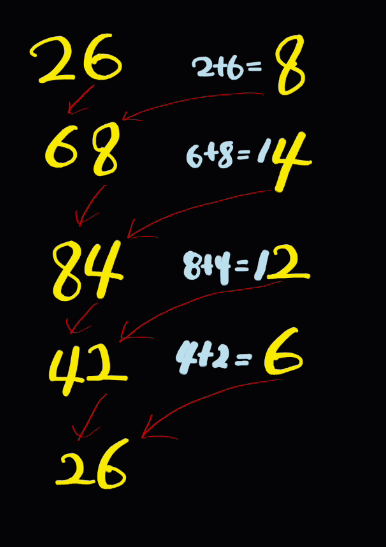 26 2+6=8
68 6+8=14
84 8+4=12
42 4+2=6
26